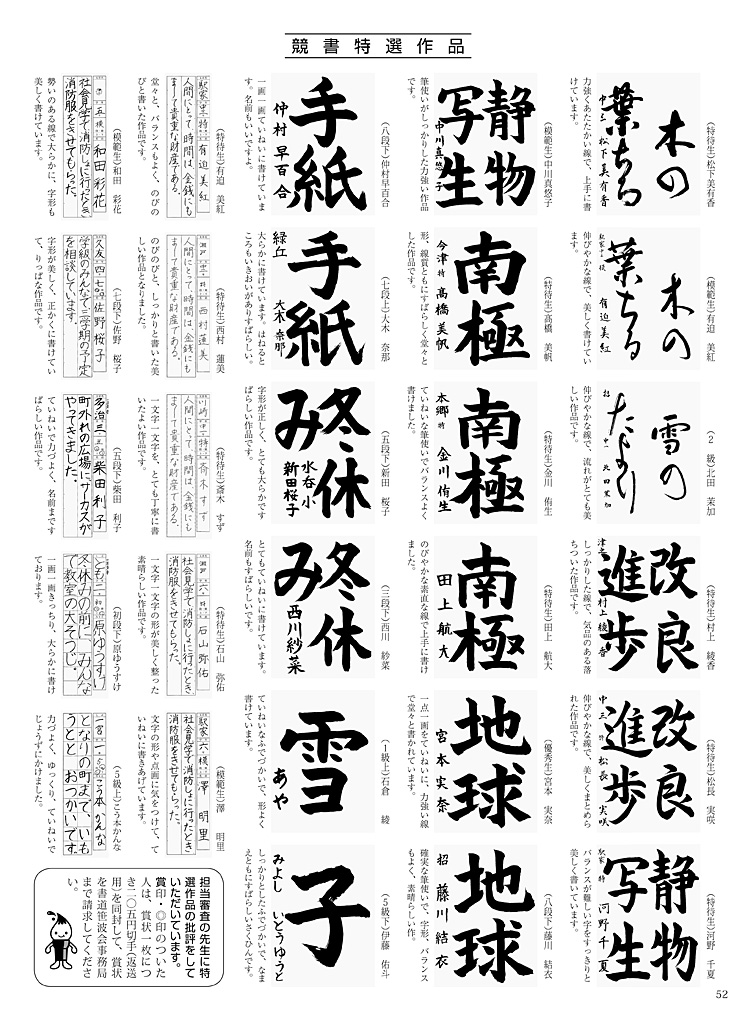 競書特選作品
(特待生)松下美有香
木の
葉ちる
中三 松下美有香
力強くあたたかい線で、上手に書
けています。
(模範生)有迫 美紅
木の
葉ちる
有迫美紅
伸びやかな線で、美しく書けてい
ます。
(2級)北田 茉加
雪の
たより
北田茉加
伸びやかな線で、流れがとても美
しい作品です。
(特待生)村上 綾香
改良
進歩
村上綾香
しっかりした線で、気品のある落
ちついた作品です。
(特待生)松長 実咲
改良
進歩
中三 特 松長実咲
伸びやかな線で、美しくまとめら
れた作品です。
(特待生)河野 千夏
静物
写生
駅家 特 河野千夏
バランスが難しい字をすっきりと
美しく書いています。
(模範生)中川真悠子
静物
写生
中川真悠子
筆使いがしっかりした力強い作品
です。
(特待生)高橋 美帆
南極
今津 特 高橋美帆
形、線質ともにすばらしく堂々と
した作品です。
(特待生)金川 侑生
南極
本郷 特 金川侑生
ていねいな筆使いでバランスよく
書けました。
(特待生)田上 航大
南極
田上航大
のびやかな素直な線で上手に書け
ました。
(優秀生)宮本 実奈
地球
宮本実奈
一点一画をていねいに、力強い線
で堂々と書かれています。
(八段)藤川 結衣
地球
招 藤川結衣
確実な筆使いで、字形、バランス
もよく、素晴らしい作。
(八段下)仲村早百合
手紙
仲村早百合
一画一画ていねいに書けていま
す。名前もいいですよ。
(七段上)大木 奈那
手紙
緑丘 大木奈那
大らかに書けています。はねると
ころもいきおいがありすばらしい。
(五段下)新田 桜子
冬休
み
水呑小 新田桜子
字形が正しく、とても大らかです
ばらしい作品です。
(三段下)西川 紗菜
冬休
み
西川紗菜
とてもていねいに書けています。
名前もすばらしいです。
(1級上)石倉 綾
雪
あや
ていねいなふでづかいで、形よく
書けています。
(5級下)伊藤 佑斗
子
みよし いとうゆうと
しっかりとしたふでづかいで、なま
えともにすばらしいさくひんです。
(特待生)有迫 美紅
駅家 中三 特 有迫美紅
人間にとって、時間は、金銭にも
まして貴重な財産である。
堂々と、バランスもよく、のびの
びと書いた作品です。
(特待生)西村 蓮美
瀬戸 中三 特 西村蓮美
人間にとって、時間は、金銭にも
まして貴重な財産である。
のびのびと、しっかりと書いた美
しい作品となりました。
(特待生)斎木 すず
川崎 中一 特 斉木すず
人間にとって、時間は、金銭にも
まして貴重な財産である。
一文字一文字を、とても丁寧に書
いたよい作品です。
(特待生)石山 弥佑
瀬戸 六 特 石山弥佑
社会見学で消防しょに行ったとき
消防服をきせてもらった。
一文字一文字の形が美しく整った
素晴らしい作品です。
(模範生)澤 明里
駅家 六 模 澤明里
社会見学で消防しょに行ったとき
消防服をきせてもらった。
文字の形や点画に気をつけて、て
いねいに書きあげています。
(模範生)和田 彩花
五 模 和田彩花
社会見学で消防しょに行ったとき
消防服をきせてもらった。
勢いのある線で大らかに、字形も
美しく書けています。
(七段下)佐野 桜子
久友 四 七 佐野桜子
学級のみんなで三学期の予定
を相談しています。
字形が美しく、正かくに書けてい
て、りっぱな作品です。
(五段下)柴田 利子
多治 三 五 柴田利子
町外れの広場に、サーカスが
やってきました。
ていねいで力づよく、名前もす
ばらしい作品です。
(初段下)原ゆうすけ
ともに 二 初 原ゆうすけ
冬休みの前に、みんな
で教室の大そうじ。
一画一画きっちり、大らかに書け
ております。
(5級上)こう本かんな
一宮 一 こう本かんな
となりの町まで、いも
うとと おつかいです。
力づよく、ゆっくり、ていねいで
じょうずにかけました。
担当審査の先生に特
選作品の批評をして
いただいています。
賞印・◎印のついた
人は、賞状一枚につ
き二〇五円切手(返送
用)を同封して、賞状
を書道笹波会事務局
まで請求してくださ
い。
52